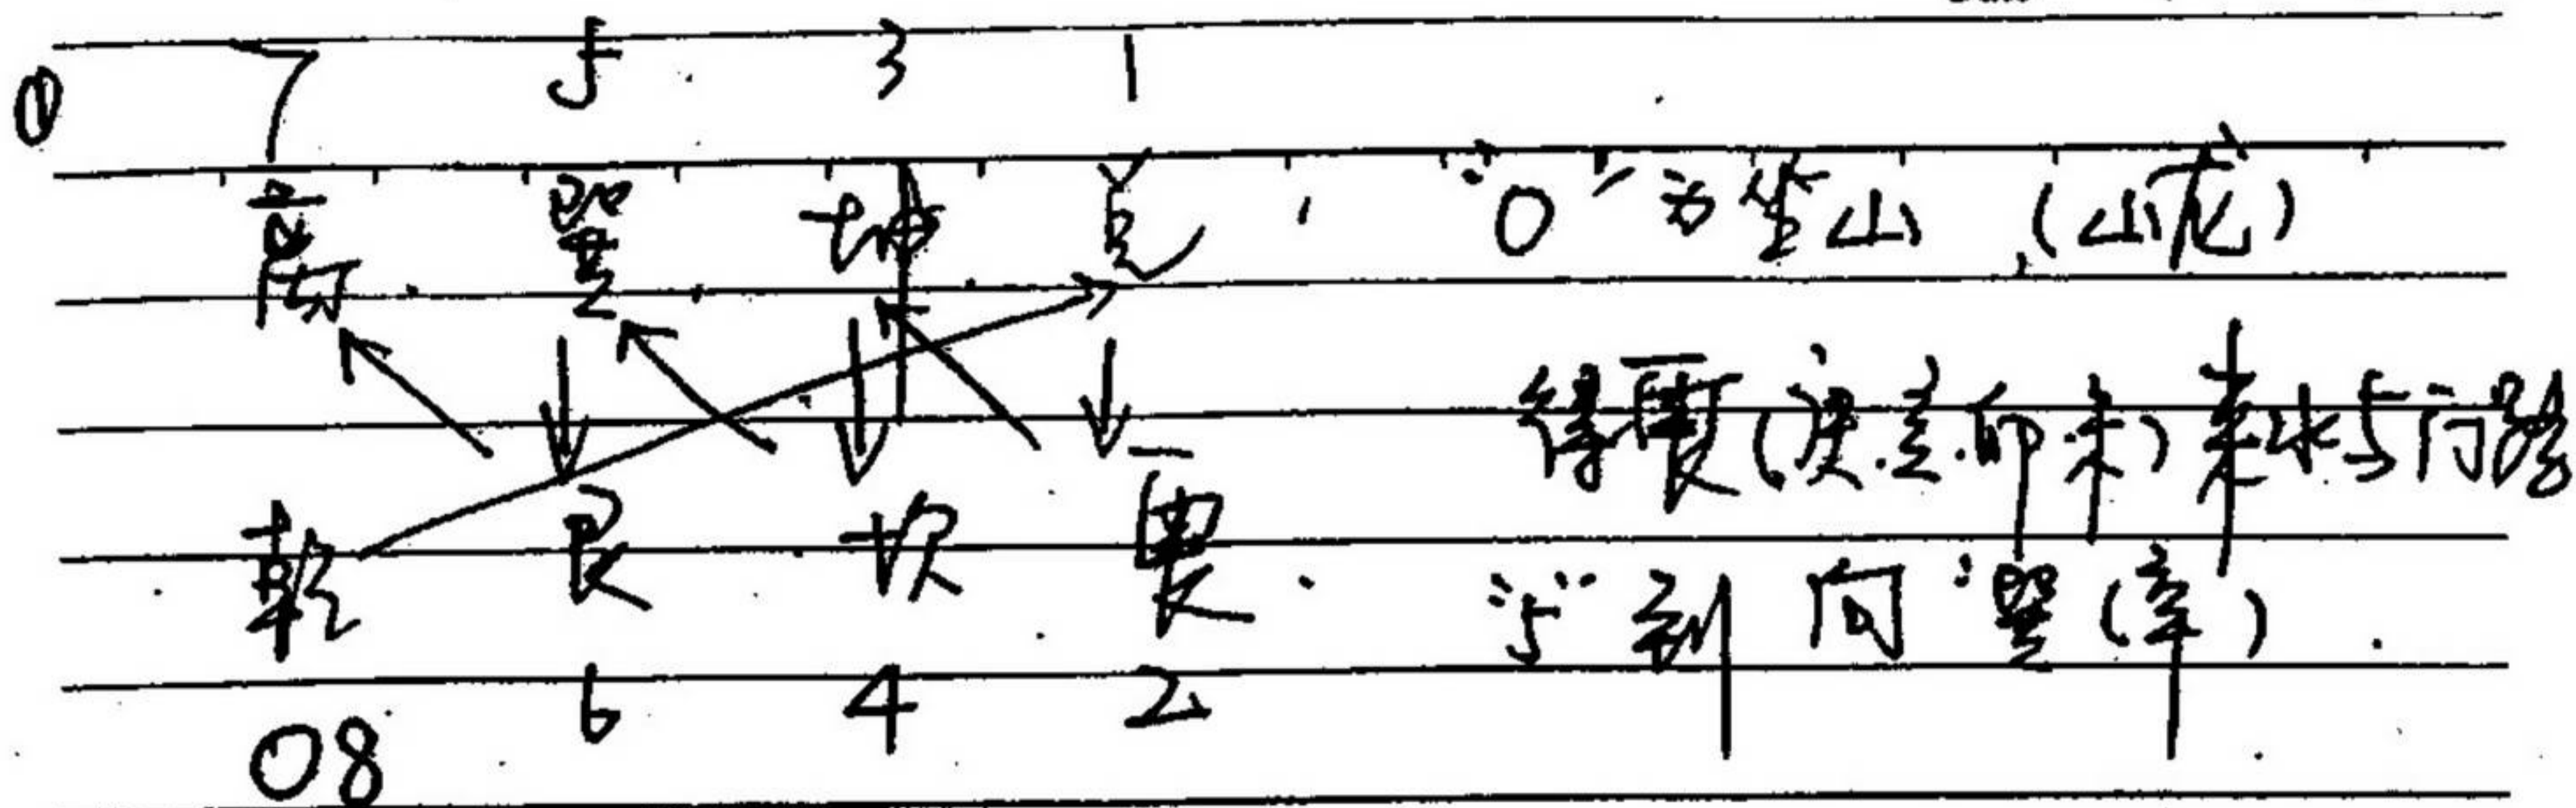 ① 7 5 3 1
离 巽 坤 兑 "0"为坐山(山龙)
得震(庚.亥.卯.未)来水与门路
乾 艮 坎 震 "5"到向 巽(辛)
08 6 4 2